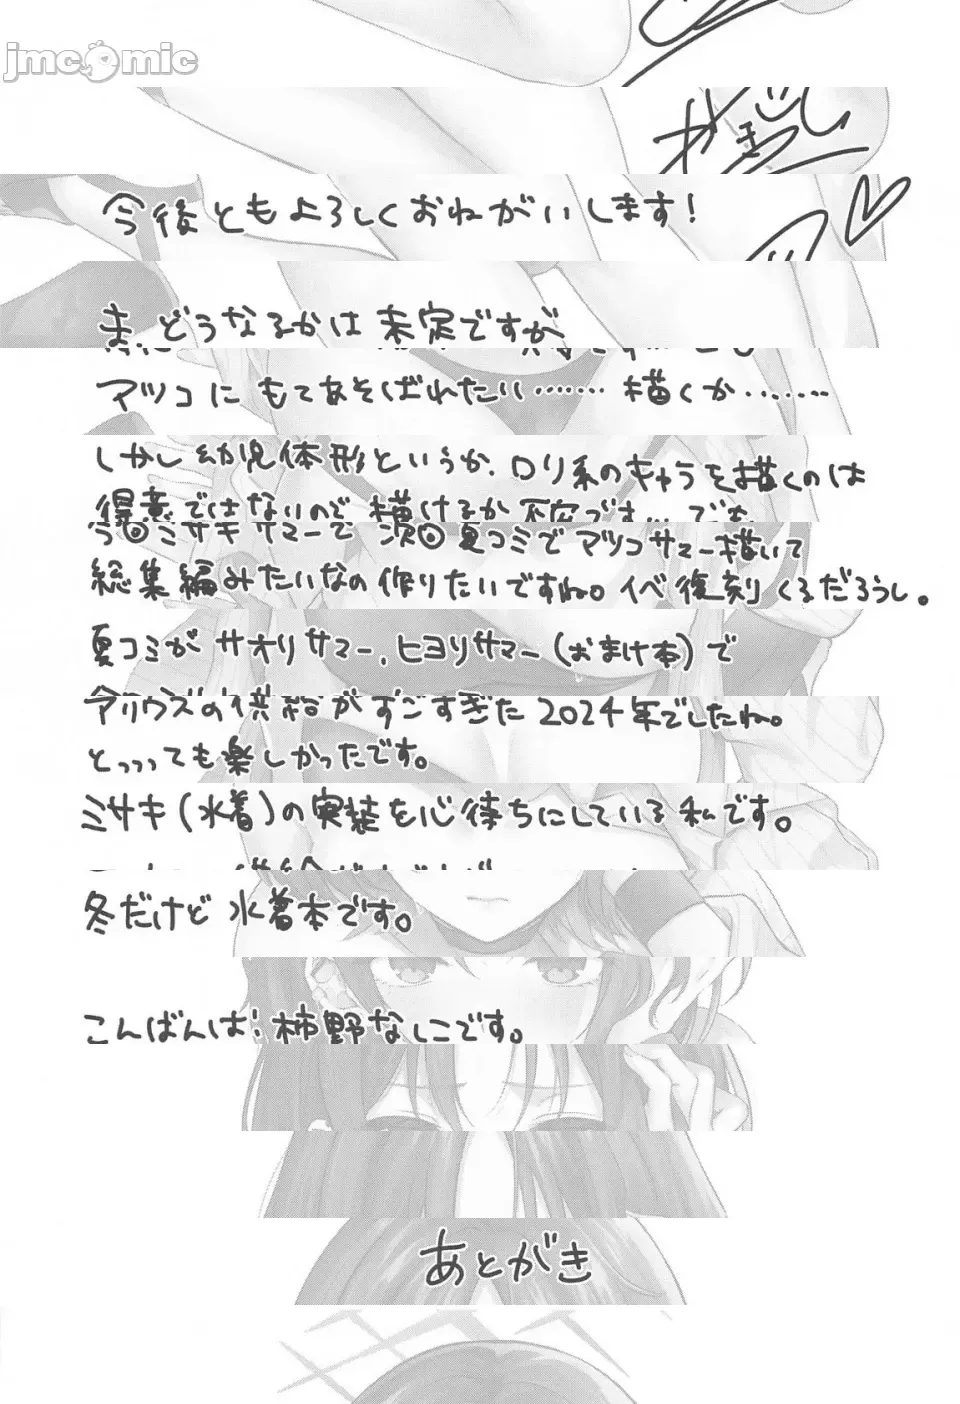 jmcomic
今後ともよろしくおねがいします!
まぁどうなるかは未定ですが
アツコにもてあそばれたい……… 描くか………
しかし幼児体形というか、ロリ系のキャラを描くのは
得意ではないので描けるか不安です… でも
今回ミサキサマーで 次回夏コミでアツコサマー描いて
総集編みたいなの作りたいですね。イベ復刻くるだろうし。
夏コミがサオリサマー、ヒヨリサマー(おまけ本)で
アリウスの供給がすごすぎた2024年でしたね。
とっっっても楽しかったです。
ミサキ(水着)の実装を心待ちにしている私です。
冬だけど水着本です。
こんばんは!柿野なしこです。
あとがき